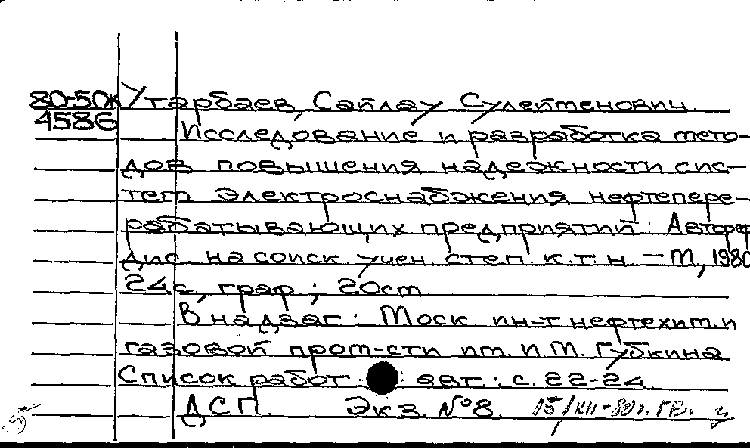 80-50К Утарбаев, Сайлау Сулейменович.
4586 Исследование и разработка мето-
дов повышения надежности сис-
тем электроснабжения нефтепере-
рабатывающих предприятий: Автореф.
дис. на соиск. учен. степ. к.т.н. — М., 1980
24 с., граф.; 20 см
В надзаг.: Моск. ин-т нефтехим. и
газовой пром-сти им. И.М. Губкина
Список работ авт.: с. 22-24.
ДСП. Экз. № 8.